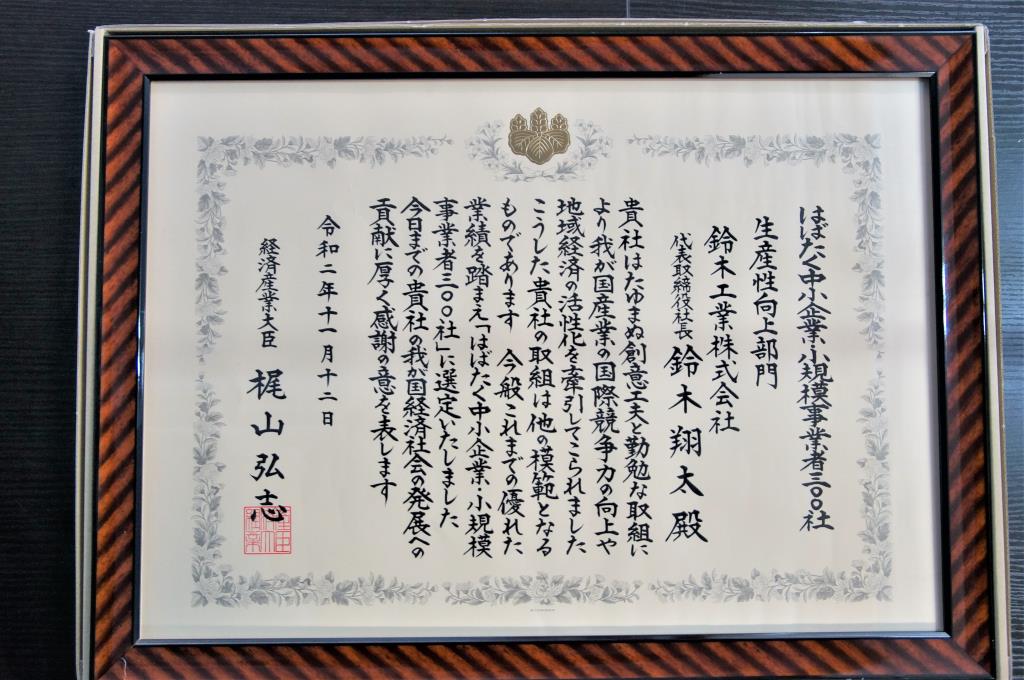 はばたく中小企業・小規模事業者三〇〇社
生産性向上部門
鈴木工業株式会社
代表取締役社長 鈴木翔太殿
貴社はたゆまぬ創意工夫と勤勉な取組に
より我が国産業の国際競争力の向上や
地域経済の活性化を牽引してこられました
こうした貴社の取組は他の模範となる
ものであります 今般これまでの優れた
業績を踏まえ「はばたく中小企業・小規模
事業者三〇〇社」に選定いたしました
今日までの貴社の我が国経済社会の発展への
貢献に厚く感謝の意を表します
令和二年十一月十二日
経済産業大臣 梶山弘志